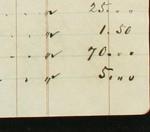 . . . " 25 . . .
. . . " 1.50
. . . " 70 . . .
. . . " 5 . . .